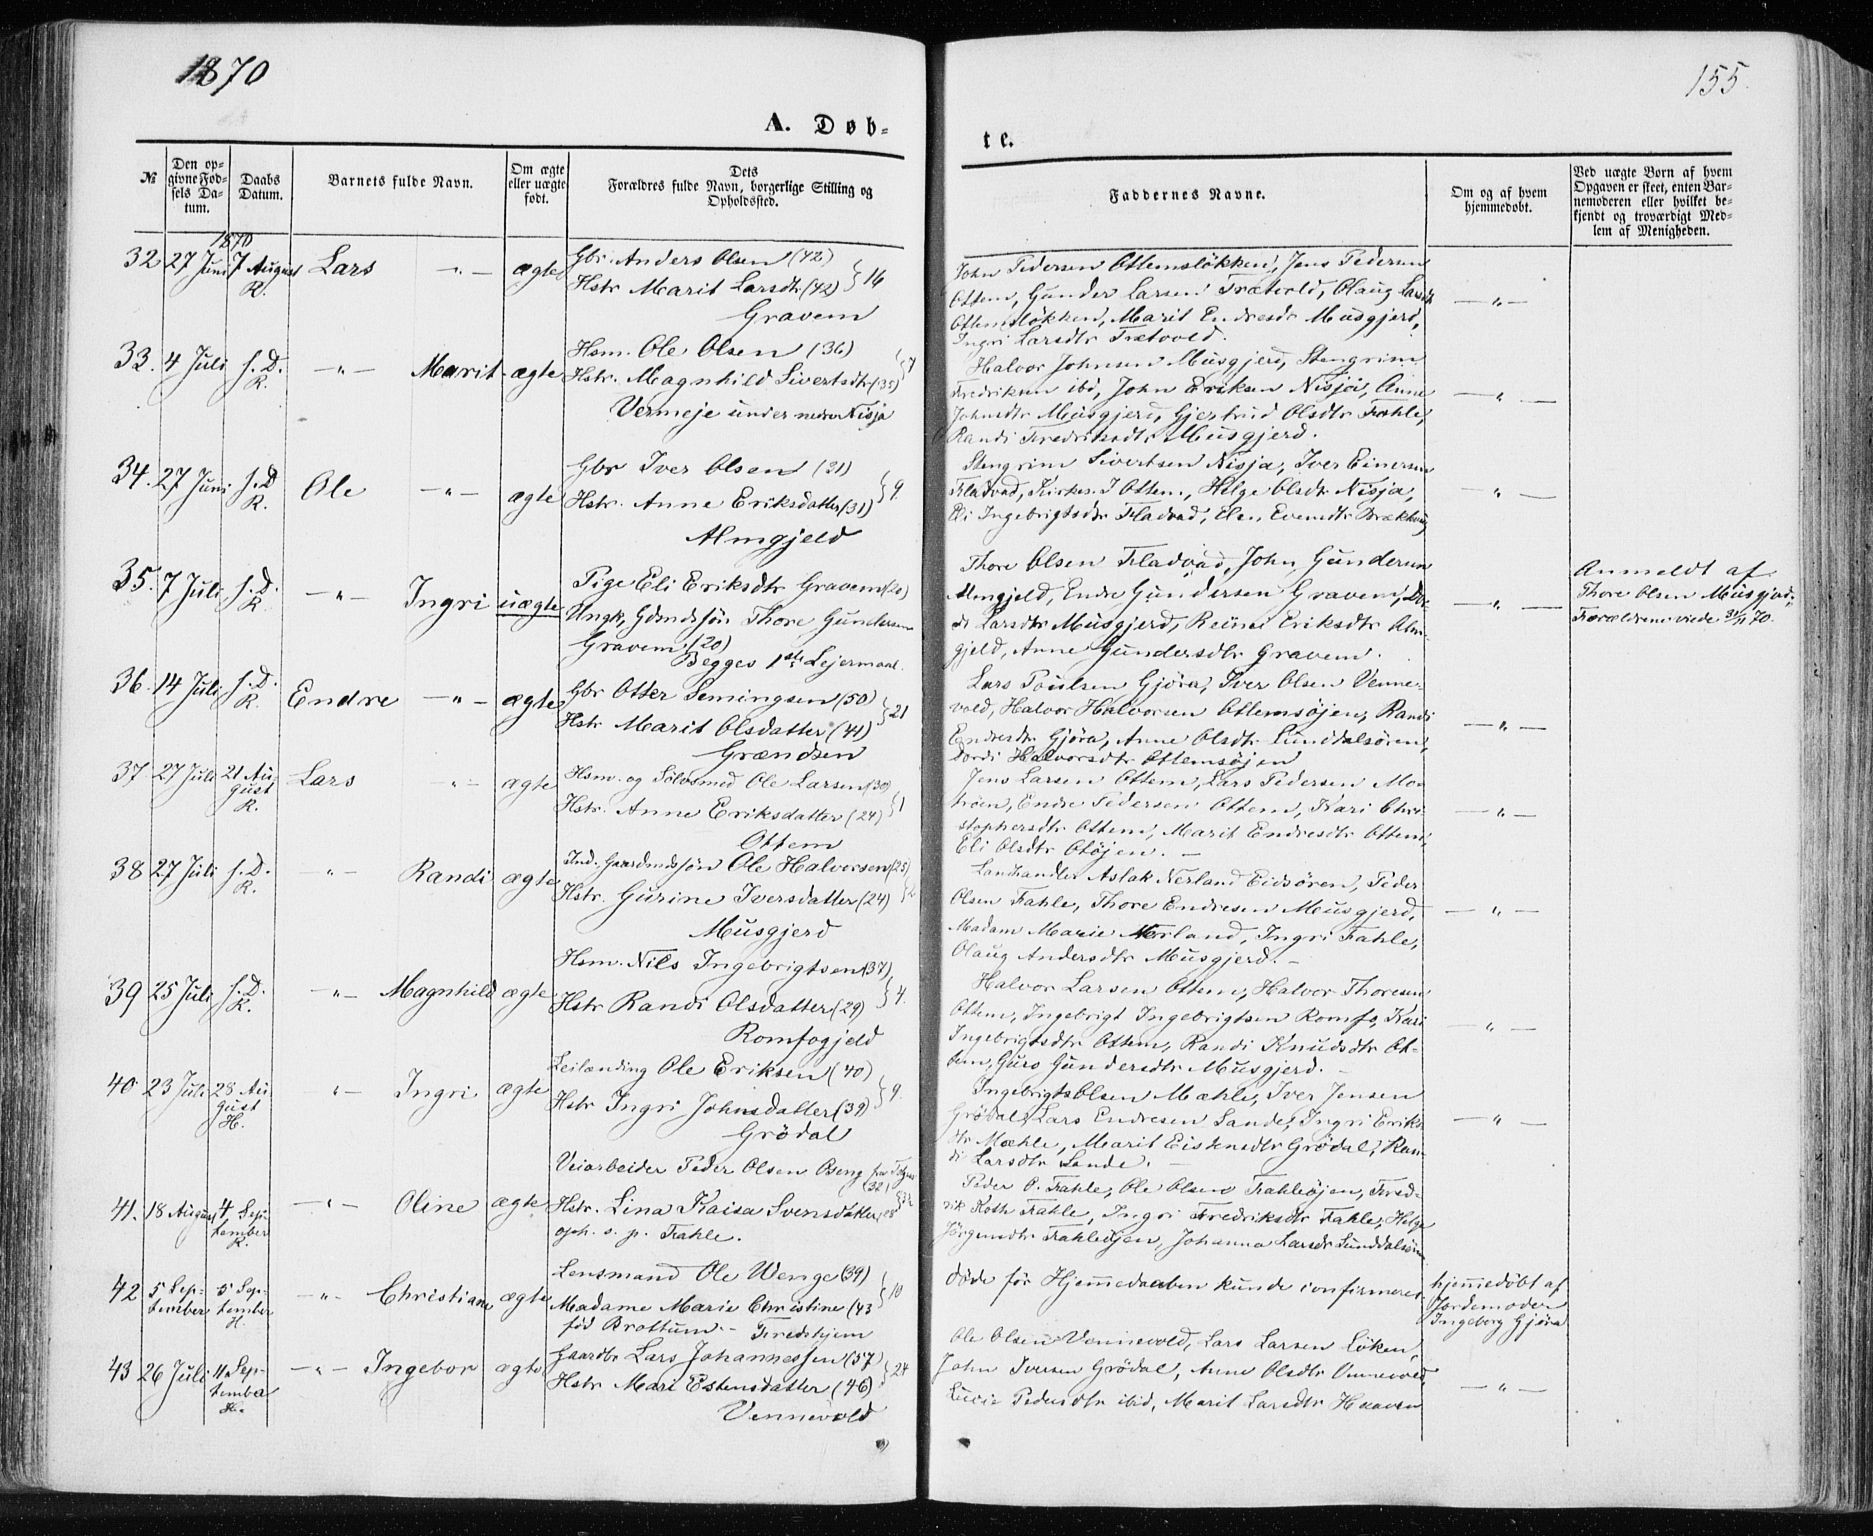 1870
155.
A. Døb-
te.
№
Den op-
givne Fød-
sels Da-
tum.
Daabs
Datum.
Barnets fulde Navn.
Om ægte
eller uægte
født.
Dets
Forældres fulde Navn, borgerlige Stilling og
Opholdssted.
Faddernes Navne.
Om og af hvem
hjemmedøbt.
Ved uægte Børn af hvem
Opgaven er skeet, enten Bar-
nemoderen eller hvilket be-
kjendt og troværdigt Med-
lem af Menigheden.
1870
32 27 Juni 7 August Lars -"- ægte Gbr. Anders Olsen (42)
R. Hstr Marit Larsdtr (42) } 16
Gravem
John Pedersen Ottemsløkken, Jens Pedersen
Ottem, Gunder Larsen Trætvold, Olaug Larsdtr
Ottemsløkken, Marit Endresdtr Musgjerd,
Ingri Larsdtr Trætvold.
-"-
33. 4 Juli s. D. -"- Marit ægte Hsm. Ole Olsen (36)
R. Hstr. Magnhild Sivertsdtr (35) } 7
Vermeje under nedre Nisja
Halvor Johnsen Musgjerd, Stengrim
Fredriksen ibd, John Eriksen Nisja, Anne
Johnsdtr Musgjerd, Gjertrud Olsdtr Fahle,
Randi Fredriksdtr Musgjerd.
-"-
34. 27 Juni s. D Ole -"- ægte Gbr Iver Olsen (31)
R. Hstr. Anne Eriksdatter (31) } 9.
Almgjeld
Stengrim Sivertsen Nisja, Iver Einersen
Fladvad, Kirkes. J Ottem, Helge Olsdtr Nisja,
Eli Ingebrigtsdtr Fladvad, Elen Evendtr Brækken
-"-
35. 7 Juli s. D. -"- Ingri uægte Pige Eli Eriksdtr Gravem (20)
R Ungk, Gdmdssøn Thore Gundersen
Gravem (20)
Begges 1ste Lejermaal.
Thore Olsen Fladvad, John Gundersen
Almgjeld, Endre Gundersen Gravem, Dor-
di Larsdtr Musgjerd, Reinei Eriksdtr Alm-
gjeld, Anne Gundersdtr Gravem.
-"-
Anmeldt af
Thore Olsen Musgjerd.
Forældrene viede 3/11 70.
36. 14 Juli s. D. Endre -"- ægte Gbr Otter Semingsen (50)
R. Hstr Marit Olsdatter (41) } 21
Grændsen
Lars Poulsen Gjøra, Iver Olsen Venne-
vold, Halvor Halvorsen Ottemsøjen, Randi
Endresdtr Gjøra, Anne Olsdtr Sunddalsøren,
Dordi Halvorsdtr Ottemsøjen
-"-
37 27 Juli 21 Au- Lars -"- ægte Hsm. og Sølvsmed Ole Larsen (30)
gust Hstr. Anne Eriksdatter (24) } 1
R. Ottem
Jens Larsen Ottem, Lars Pedersen Mo-
høen, Endre Pedersen Ottem, Kari Chri-
stophersdtr Ottem, Marit Endresdtr Ottem,
Eli Olsdtr Otøjen. -
-"-
38 27 Juli s. D. -"- Randi ægte Ind. Gaardmdssøn Ole Halvorsen (25)
R. Hstr. Gurine Iversdatter (24)
Musgjerd
Landhandler Aslak Nerland Eidsøren, Peder
Olsen Fahle, Thore Endresen Musgjerd,
Madam Marie Nerland, Ingri Fahle,
Olaug Andersdtr Musgjerd. -
-"-
39 25 Juli s. D. -"- Magnhild ægte Hsm. Nils Ingebrigtsen (37)
R. Hstr Randi Olsdatter (29) } 4.
Romfogjeld
Halvor Larsen Ottem, Halvor Thoresen
Ottem, Ingebrigt Ingebrigtsen Romfo, Kari
Ingebrigtsdtr Ottem, Randi Knudsdtr Ot-
tem, Guro Gundersdtr Musgjerd. -
-"-
40 23 Juli 28 Au- -"- Ingri ægte Leilænding Ole Eriksen (40)
gust Hstr Ingri Johnsdatter (39) } 9.
H. Grödal
Ingebrigt Olsen Mæhle, Iver Jensen
Grödal, Lars Endresen Sande, Ingri Eriks-
dtr Mæhle, Marit Eistensdtr Grödal, Ran-
di Larsdtr Sande. -
-"-
41. 18 August 4 Sep- -"- Oline ægte Veiarbeider Peder Olsen
tember (32)
R. Hstr. Lina Kaisa Svensdatter (28
oph. s. p. Fahle.
Peder O. Fahle, Ole Olsen Fahleøjen, Fred-
rik Roth Fahle, Ingri Fredriksdtr Fahle, Helge
Jörgensdtr Fahleøjen, Johanna Larsdtr Sunddalsøren
42 5 Sep- 5 Sep- -"- Christiane ægte Lensmand Ole Wenge (39)
tember tember Madame Marie Christine (43 } 10
H. fød Brottum - Fredshjem
døde før Hjemmedaaben kunde confirmeres
hjemmedøbt af
Jordemoder
Ingeborg Gjøra
43 26 Juli 11 Sep- -"- Ingebor ægte Gaardbr Lars Johannessen (57)
tember Hstr Mari Estensdatter (46) } 24
H. Vennevold
Ole Olsen Vennevold, Lars Larsen Løken,
John Iversen Grödal, Anne Olsdtr Vennevold,
Lucie Pedersdtr ibid, Marit Larsdtr Haaven
-"-